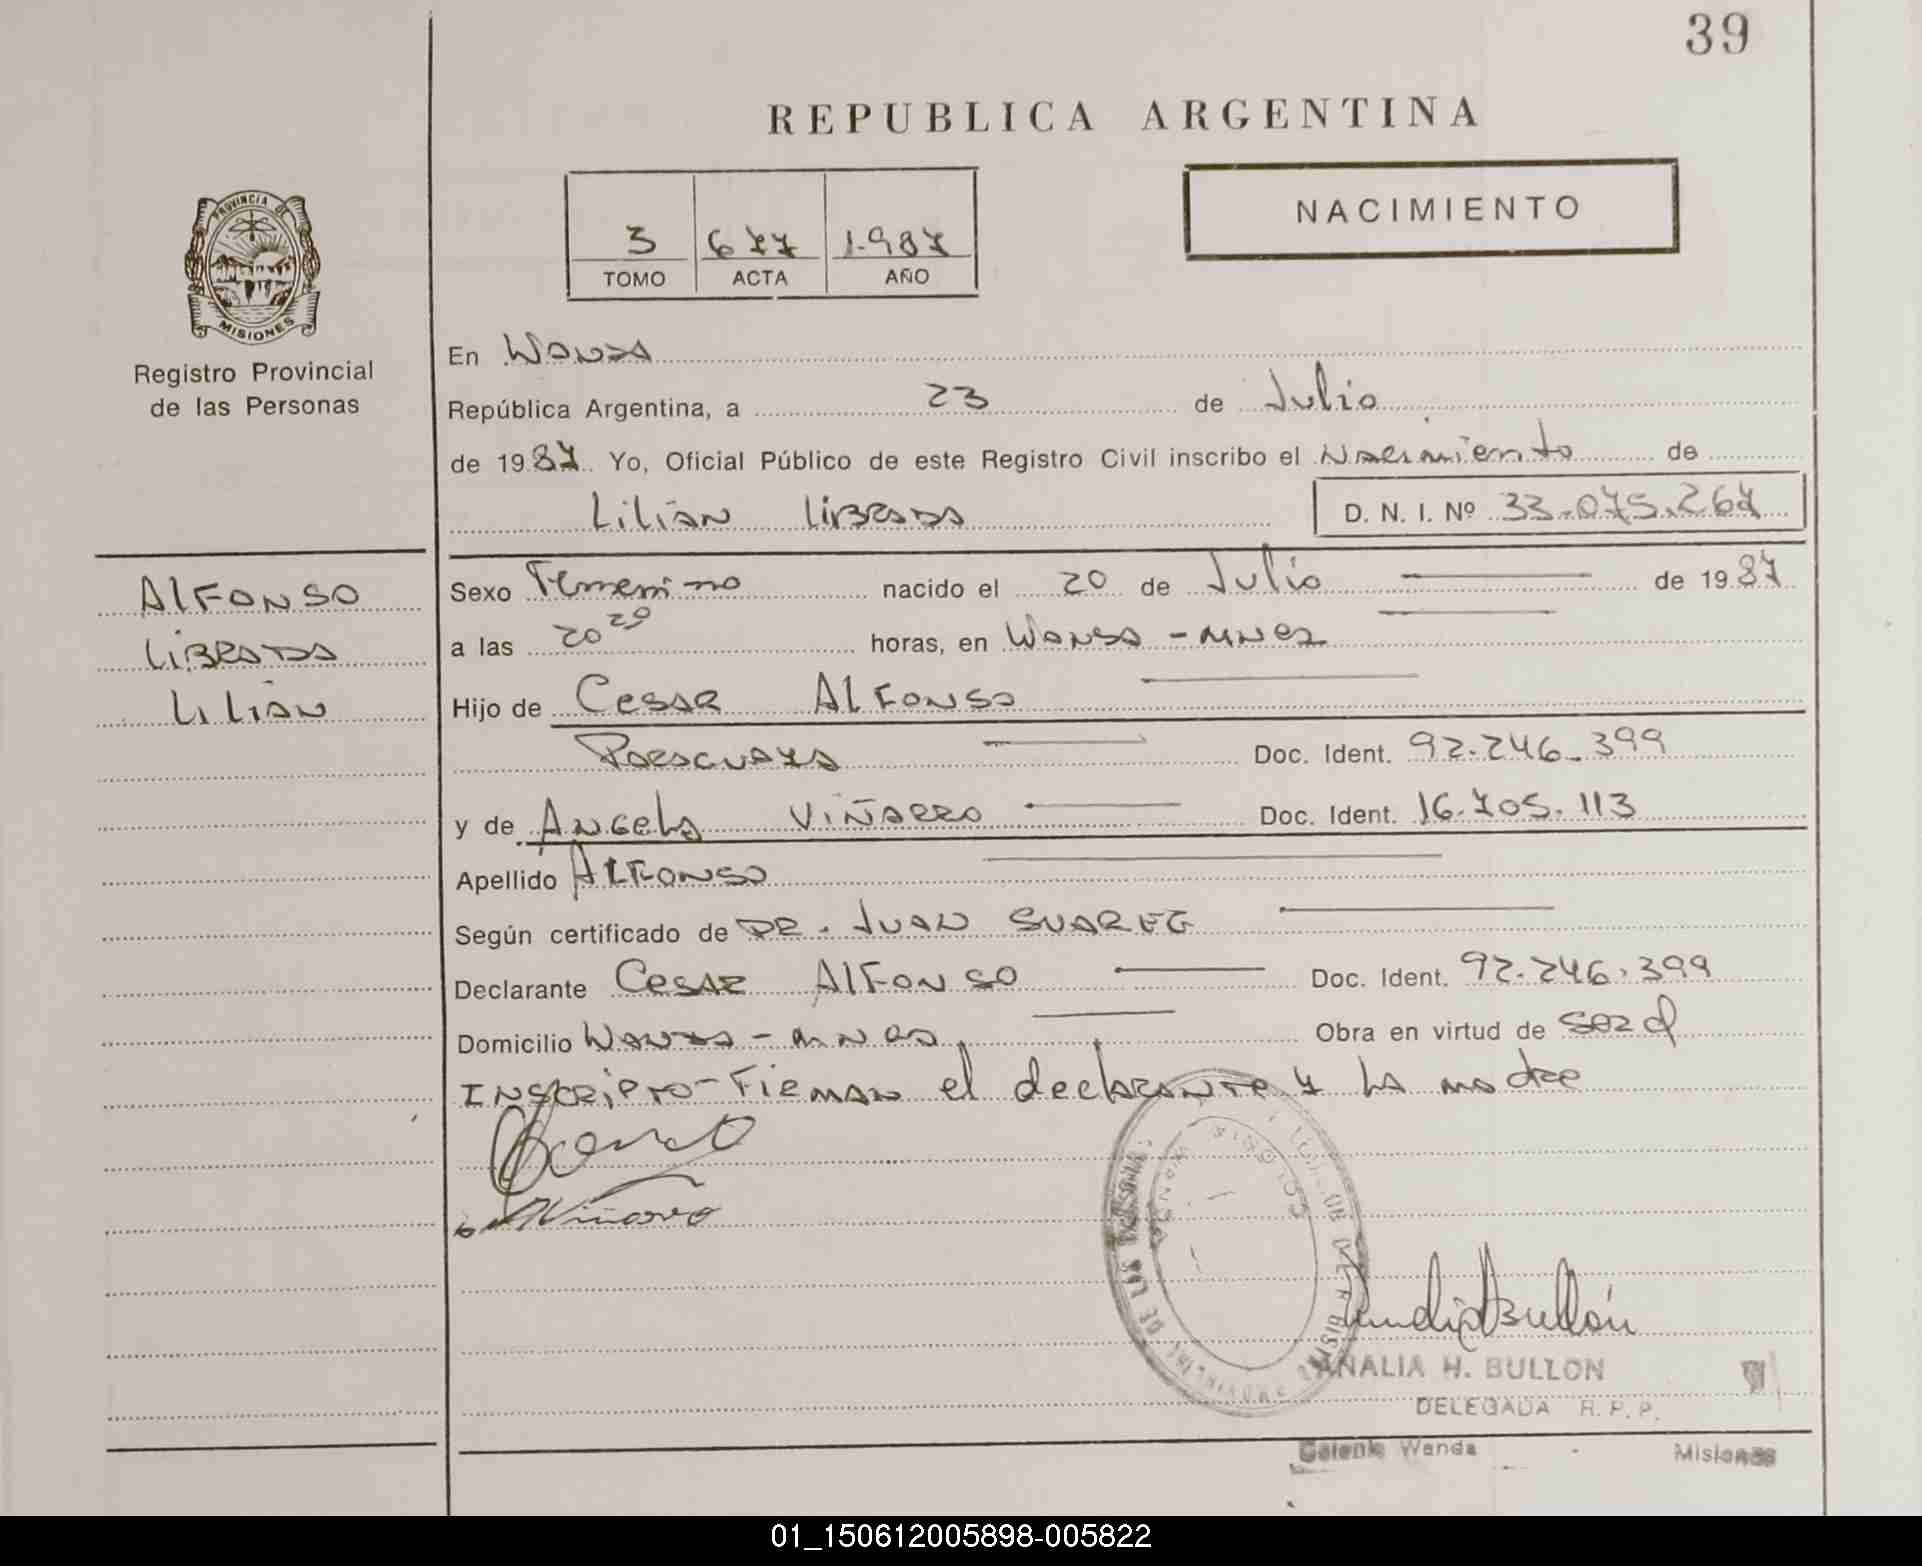 39
REPUBLICA ARGENTINA
PROVINCIA DE
MISIONES
Registro Provincial
de las Personas
3 677 1.987
TOMO ACTA AÑO
NACIMIENTO
En Wanda
República Argentina, a 23 de Julio
de 1987 Yo, Oficial Público de este Registro Civil inscribo el Nacimiento de
Lilian Librada D. N. I. Nº 33.075.267
ALFONSO
LIBRADA
LILIAN
Sexo Femenino nacido el 20 de Julio de 1987
a las 20 20 horas, en Wanda - Mnes
Hijo de Cesar ALFONSO
Paraguaya Doc. Ident. 92.246.399
y de Angela Viñarro Doc. Ident. 16.705.113
Apellido ALFONSO
Según certificado de DR. JUAN SUAREG
Declarante Cesar ALFONSO Doc. Ident. 92.246.399
Domicilio Wanda - Mnes Obra en virtud de ser el
INSCRIPTO - Firman el declarante y la madre
Viñarro
DE LAS
WANDA
MISIONES
Analia H Bullón
ANALIA H. BULLON
DELEGADA R. P. P.
Colonia Wanda Misiones
01_150612005898-005822